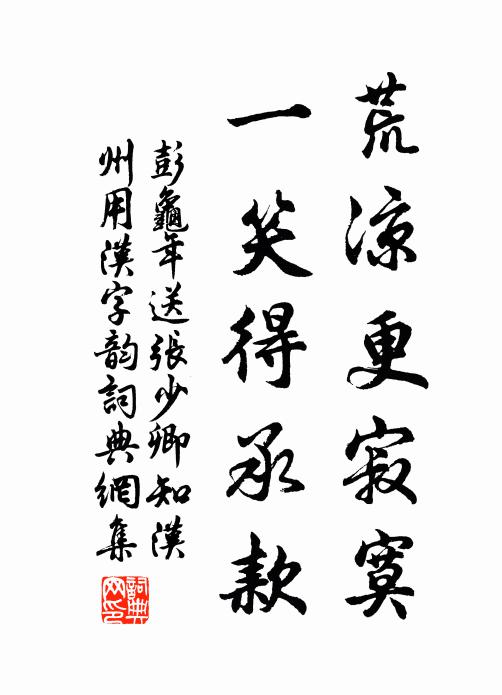 荒涼更寂寞
一笑得承款
彭龜年送張少卿知漢
州用漢字韵詞典網集
詞典
网印